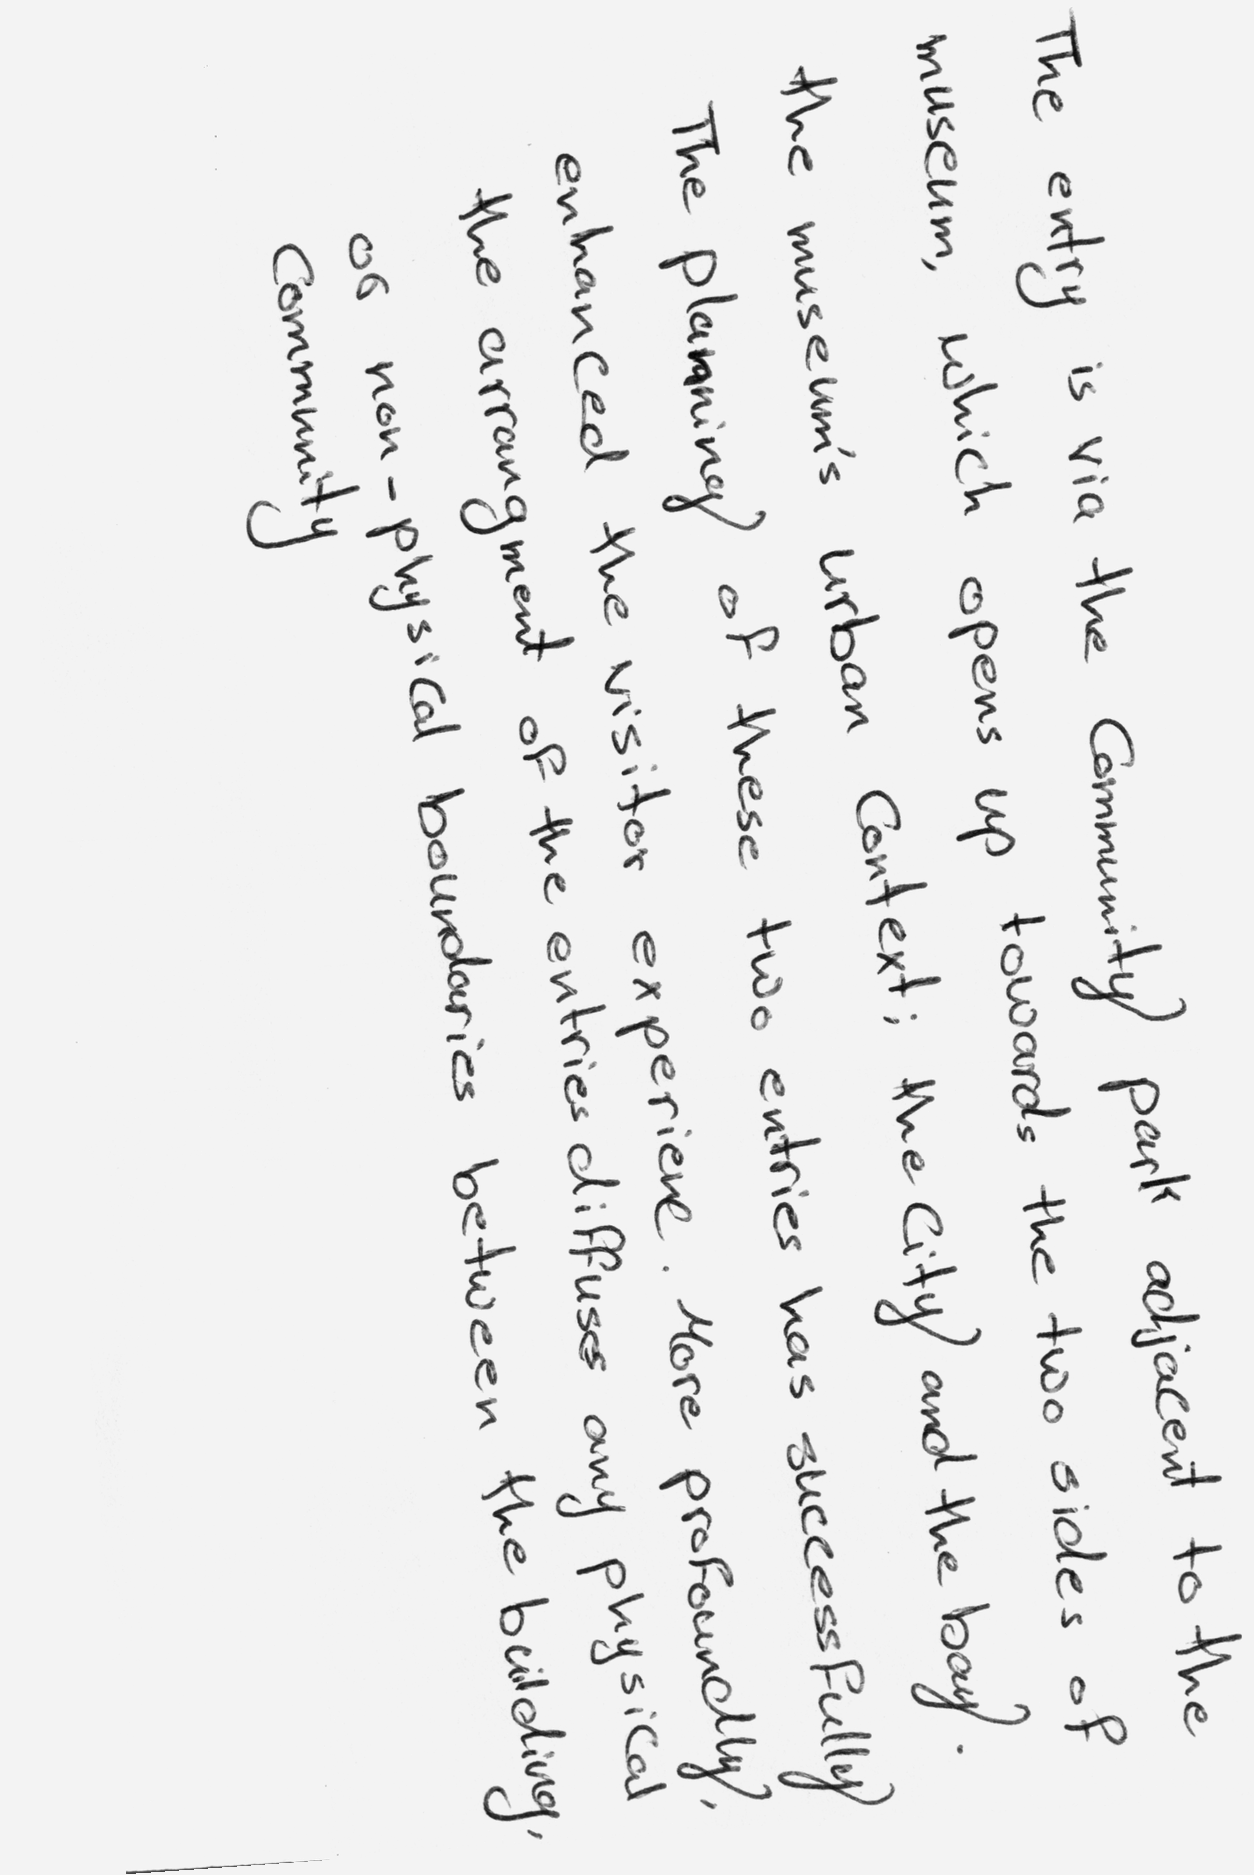 The entry is via the Community park adjacent to the
museum, which opens up towards the two sides of
the museum's urban Context; the City and the bay.
The planning of these two entries has successfully
enhanced the visitor experience. More profoundly,
the arrangment of the entries diffuses any physical
or non-physical boundaries between the building,
Community